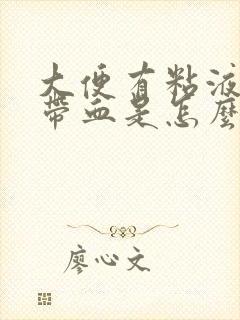 大便有粘液
帶血是怎麼
廖心文